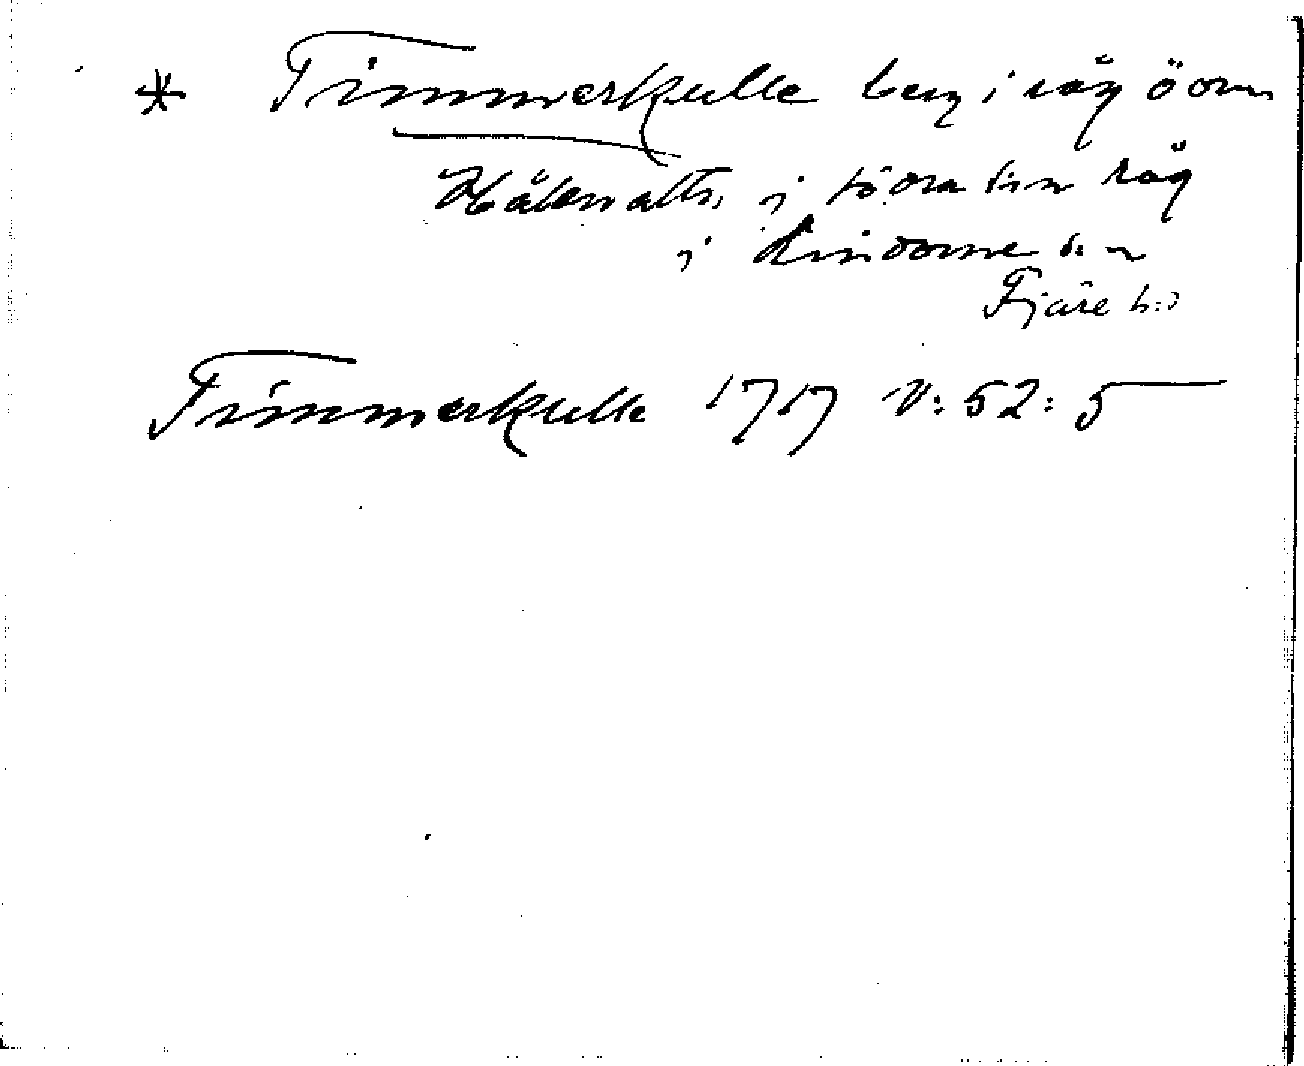 * Timmerkulle berg i råg ö om
Hålsnatts, i södra den råg
i Lindome s:n
Fjäre h:d
Timmerkulle 1717 V: 52: 5